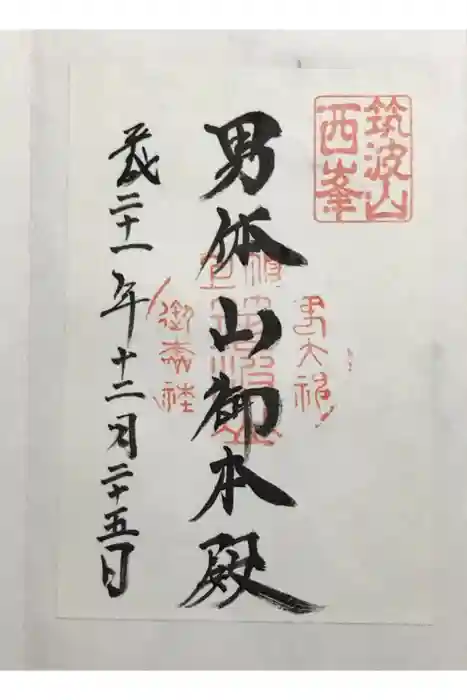 筑波山
西峯
男大神
男体山御本殿
平成二十一年十二月二十五日